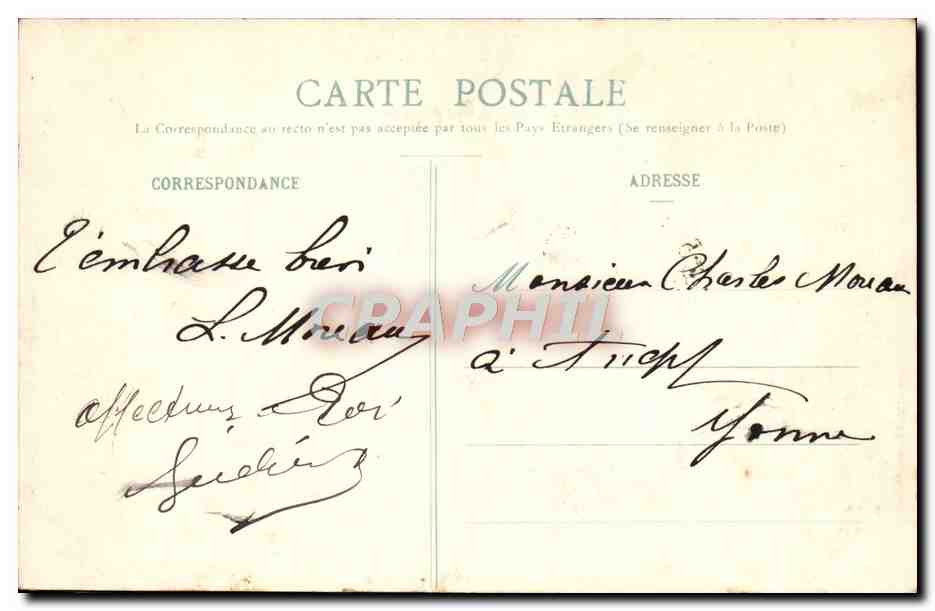 CARTE POSTALE
La Correspondance au recto n'est pas acceptée par tous les Pays Etrangers (Se renseigner à la Poste)
CORRESPONDANCE
t'embrasse bien
L. Moreau
affectueux
ADRESSE
Monsieur Charles Moreau
à
Yonne
CPAPHIL